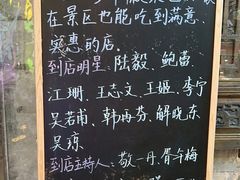 在景区也能吃到满意、
实惠的店.
到店明星: 陆毅、鲍蕾
江珊、王志文、王姬、李宁
吴若甫、韩再芬、解晓东
吴琼
到店主持人、敬一丹、胥午梅